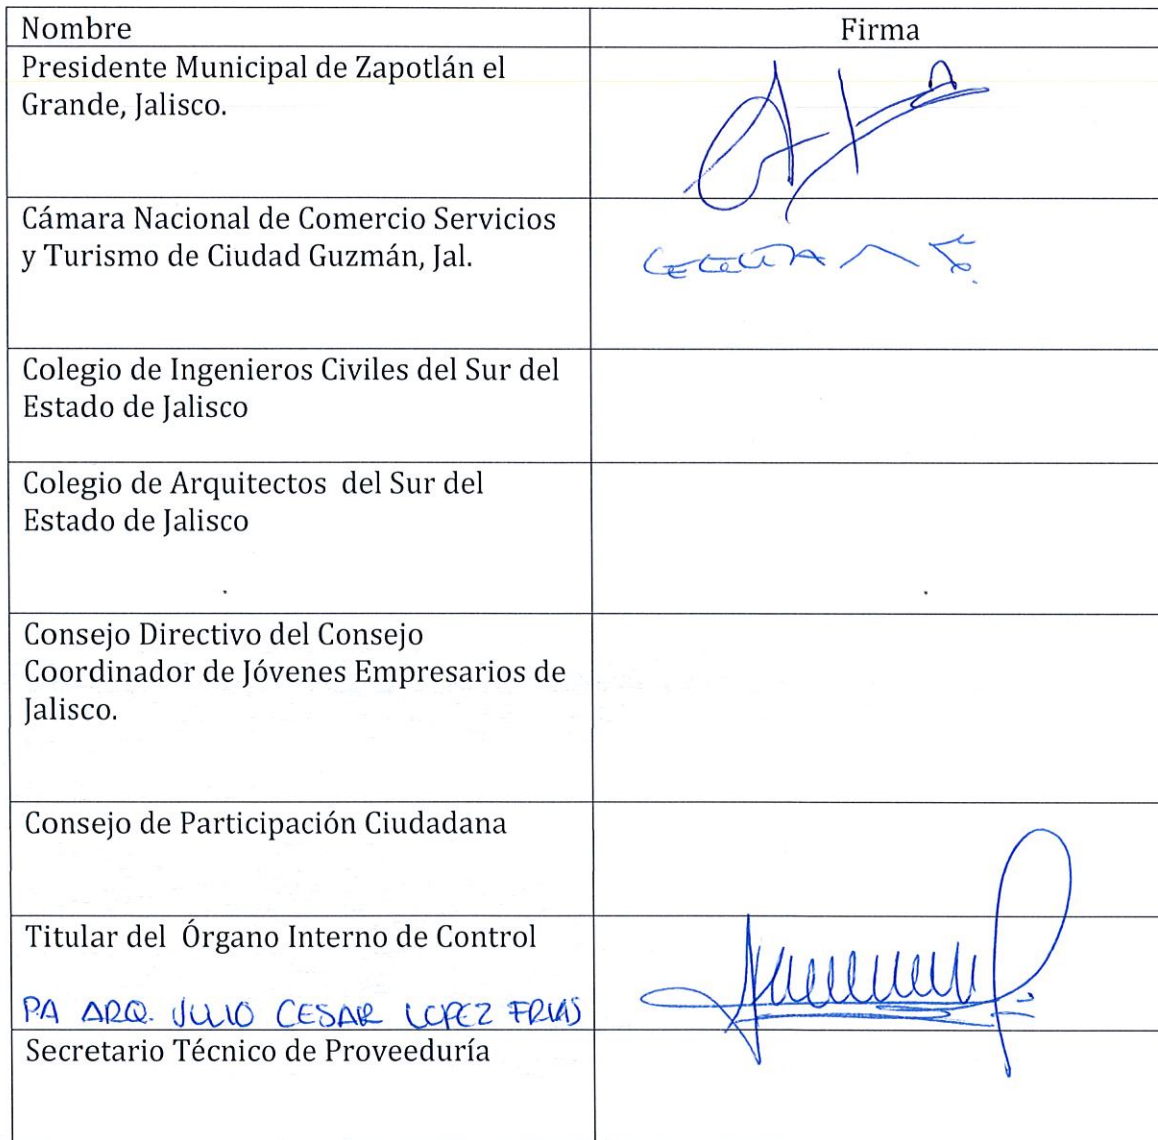 Nombre Firma
Presidente Municipal de Zapotlán el
Grande, Jalisco.
Cámara Nacional de Comercio Servicios
y Turismo de Ciudad Guzmán, Jal.
Colegio de Ingenieros Civiles del Sur del
Estado de Jalisco
Colegio de Arquitectos del Sur del
Estado de Jalisco
Consejo Directivo del Consejo
Coordinador de Jóvenes Empresarios de
Jalisco.
Consejo de Participación Ciudadana
Titular del Órgano Interno de Control
PA ARQ. JULIO CESAR LOPEZ FRIAS
Secretario Técnico de Proveeduría